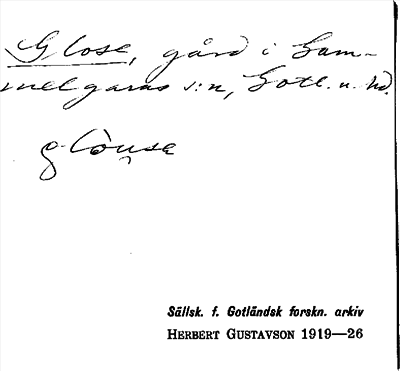 Glose, gård i Gam-
melgarns s:n, Gotl. n. hd.
glòu̯sa
Sällsk. f. Gotländsk forskn. arkiv
HERBERT GUSTAVSON 1919—26